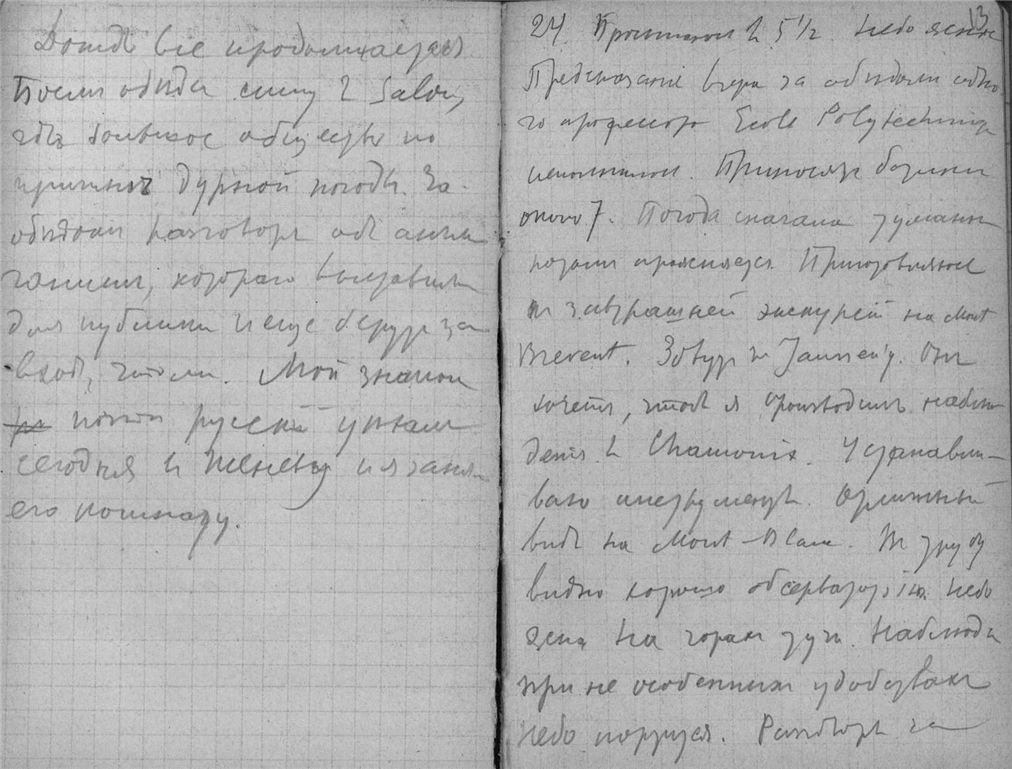 Дождь все продолжается
После обѣда сижу в Salon,
гдѣ большое общество по
причинѣ дурной погоды. За
обѣдом разговоръ объ англи
чанине, котораго выставили
для публики и еще берут за
вход, что ли. Мой знаком
русскій уѣхал
сегодня в Женеву и я занял
его комнату.
13
24. Проснулся в 5½. Небо ясное
Предсказаніе вчера за обѣдом одно
го профессора Ecole Polytechnique
исполнилось. Приносят
около 7. Погода сначала туманна
потом проясняется. Приготовляюсь
к завтрашней экскурсіи на Mont
Brevent. Зовут к Janssen'у. Он
хочет, чтобъ я производилъ наблю
денія в Chamonix. Устанавли-
ваю инструментъ. Отличный
видъ на Mont-Blanc. В трубу
видно хорошо обсерваторію. Небо
на горах тучи. Наблюда
при не особенных удобствах
Небо портится. Разговоръ за